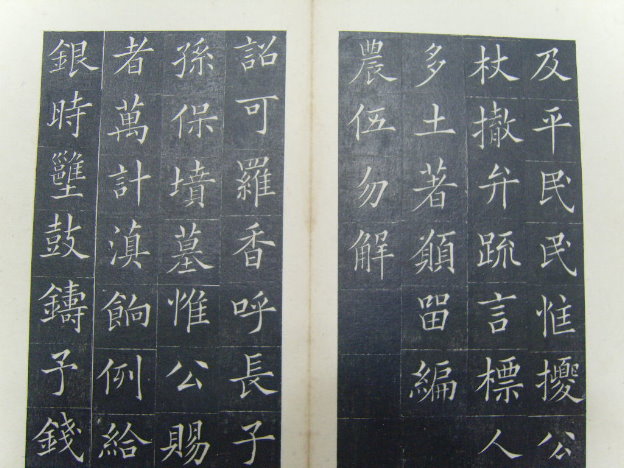 及平民民惟擾公
杖撤弁疏言標人
多土著願留編
農伍勿解
詔可羅香呼長子
孫保墳墓惟公賜
者萬計滇餉例給
銀時壅鼓鑄予錢